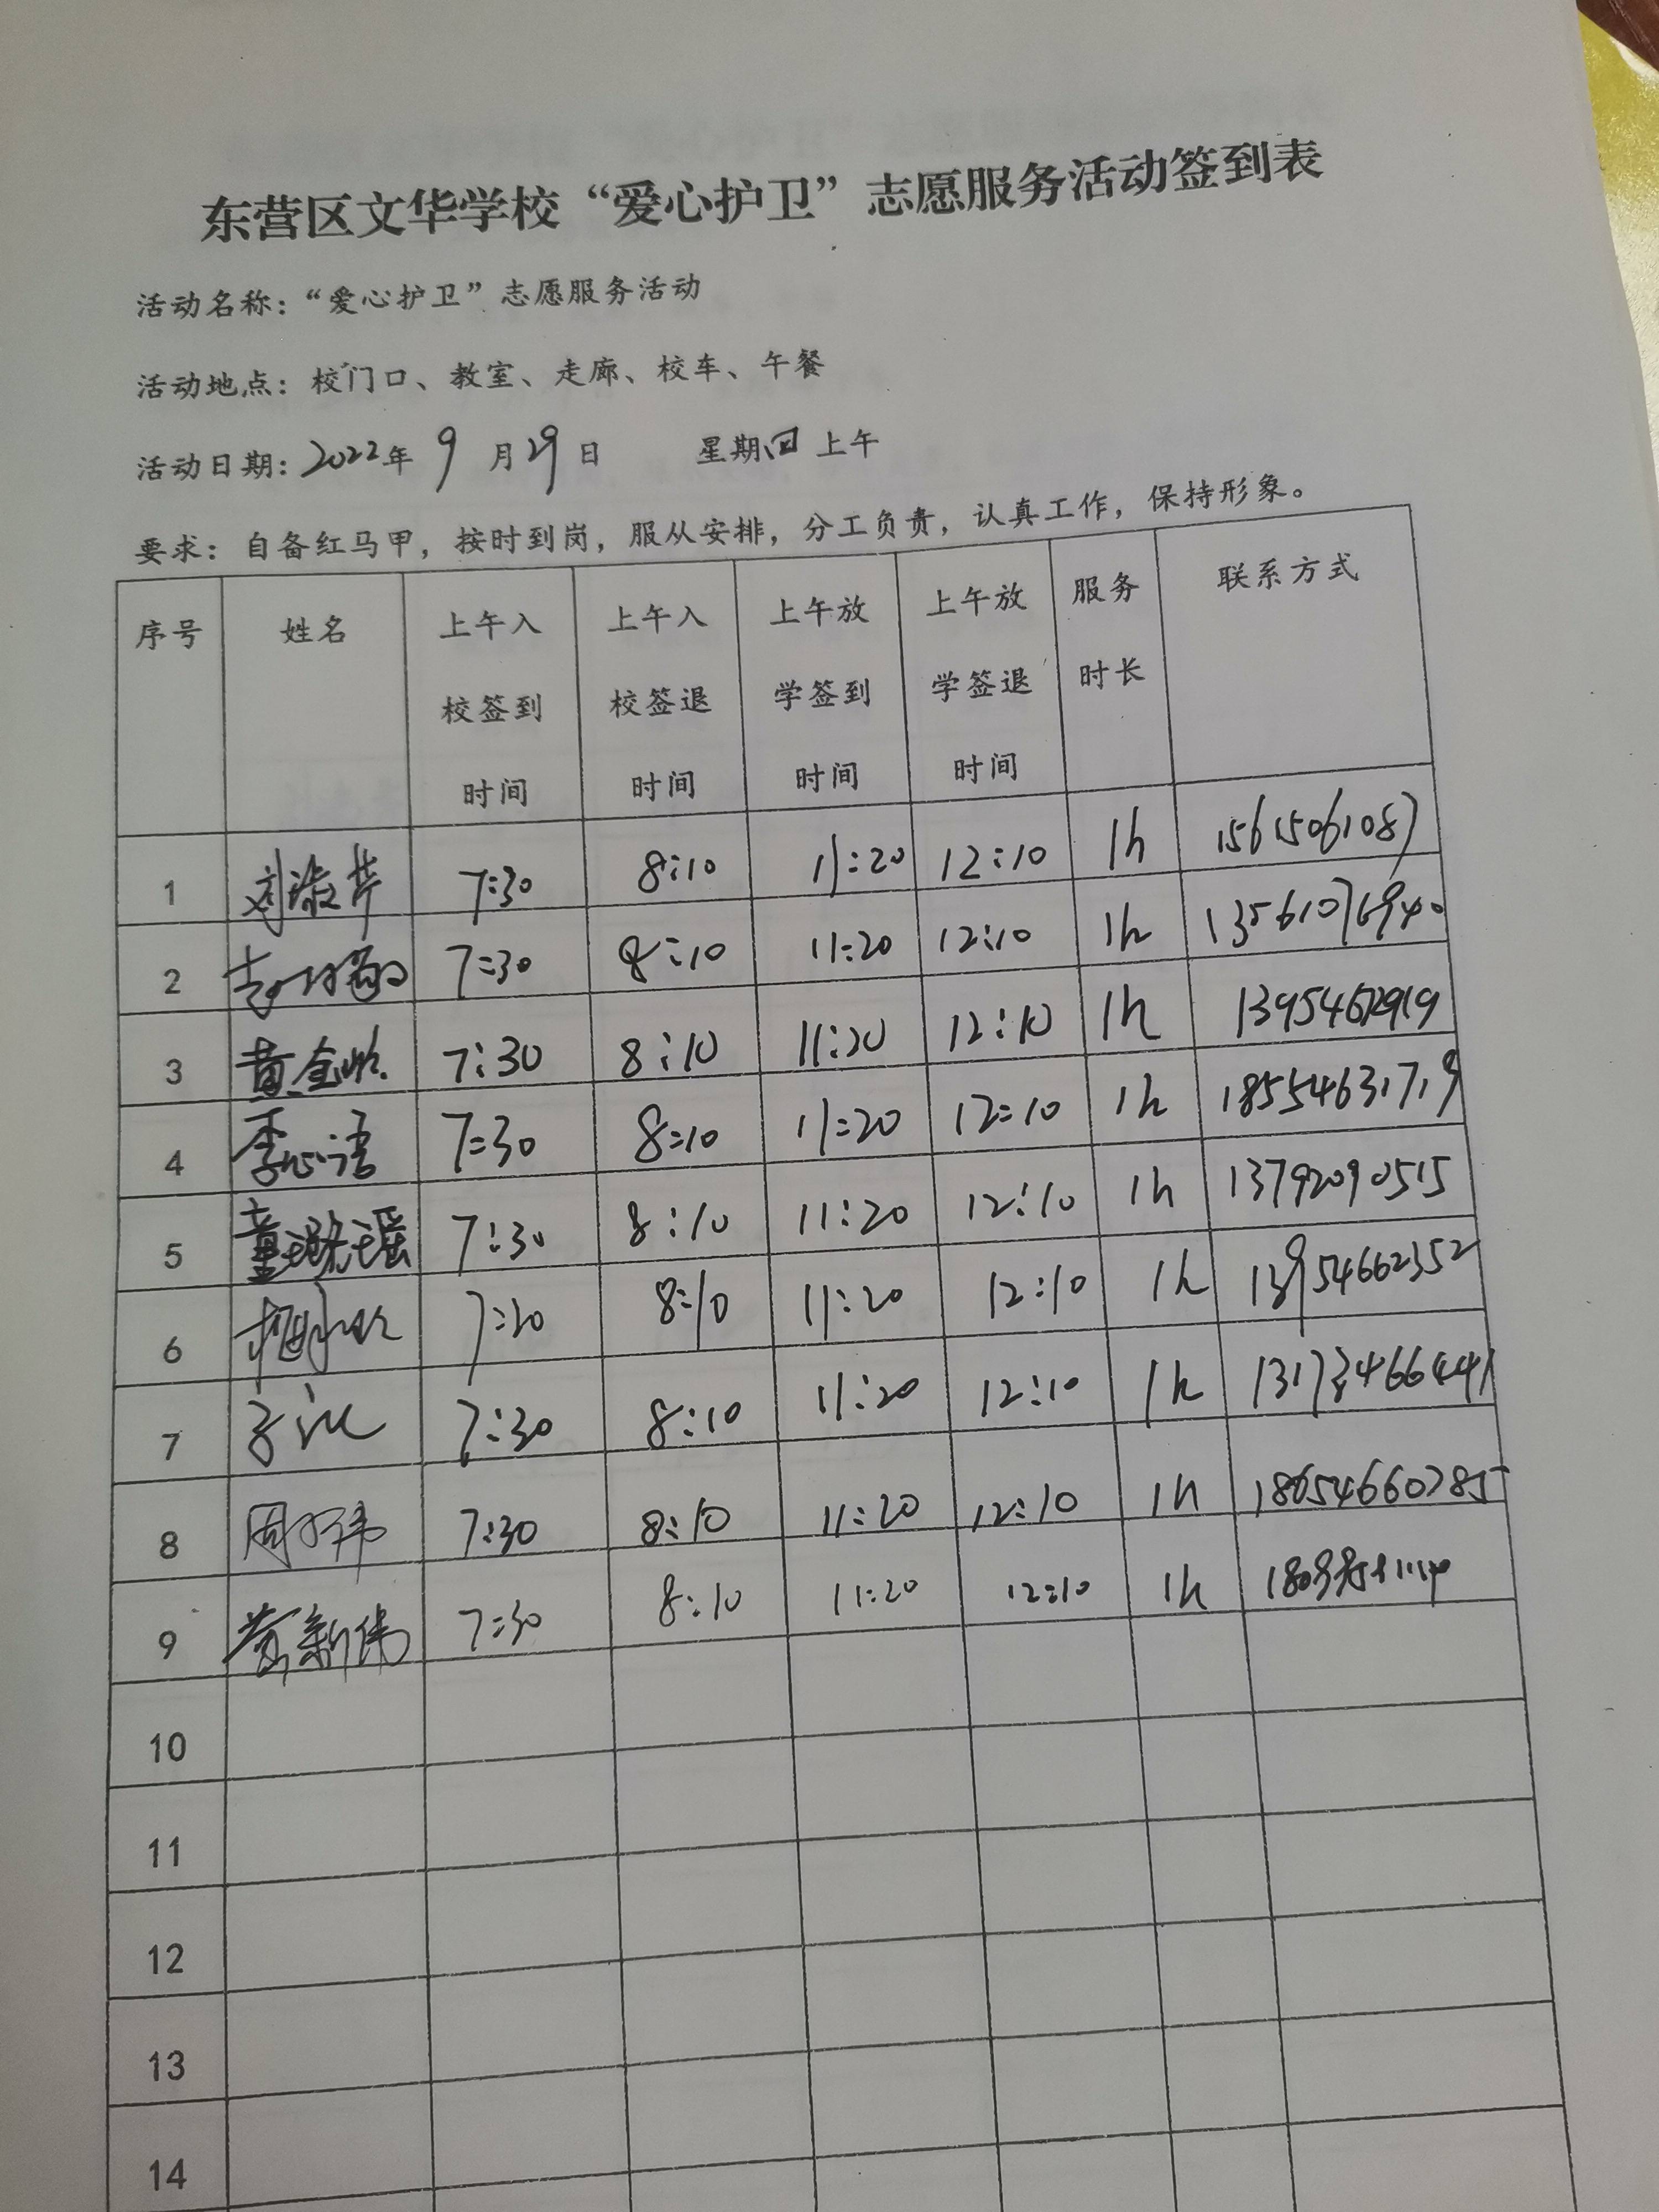 东营区文华学校“爱心护卫”志愿服务活动签到表
活动名称：“爱心护卫”志愿服务活动
活动地点：校门口、教室、走廊、校车、午餐
活动日期：2022年 9 月 29 日 星期四 上午
要求：自备红马甲，按时到岗，服从安排，分工负责，认真工作，保持形象。
序号 姓名 上午入校签到时间 上午入校签退时间 上午放学签到时间 上午放学签退时间 服务时长 联系方式
1 刘淑芹 7:30 8:10 11:20 12:10 1h 15615061087
2 7:30 8:10 11:20 12:10 1h 13561076940
3 黄金 7:30 8:10 11:20 12:10 1h
4 李心语 7:30 8:10 11:20 12:10 1h 18554631719
5 董璐瑶 7:30 8:10 11:20 12:10 1h 13792090515
6 7:30 8:10 11:20 12:10 1h 13954662352
7 7:30 8:10 11:20 12:10 1h
8 周 伟 7:30 8:10 11:20 12:10 1h 18654660785
9 黄新伟 7:30 8:10 11:20 12:10 1h
10
11
12
13
14